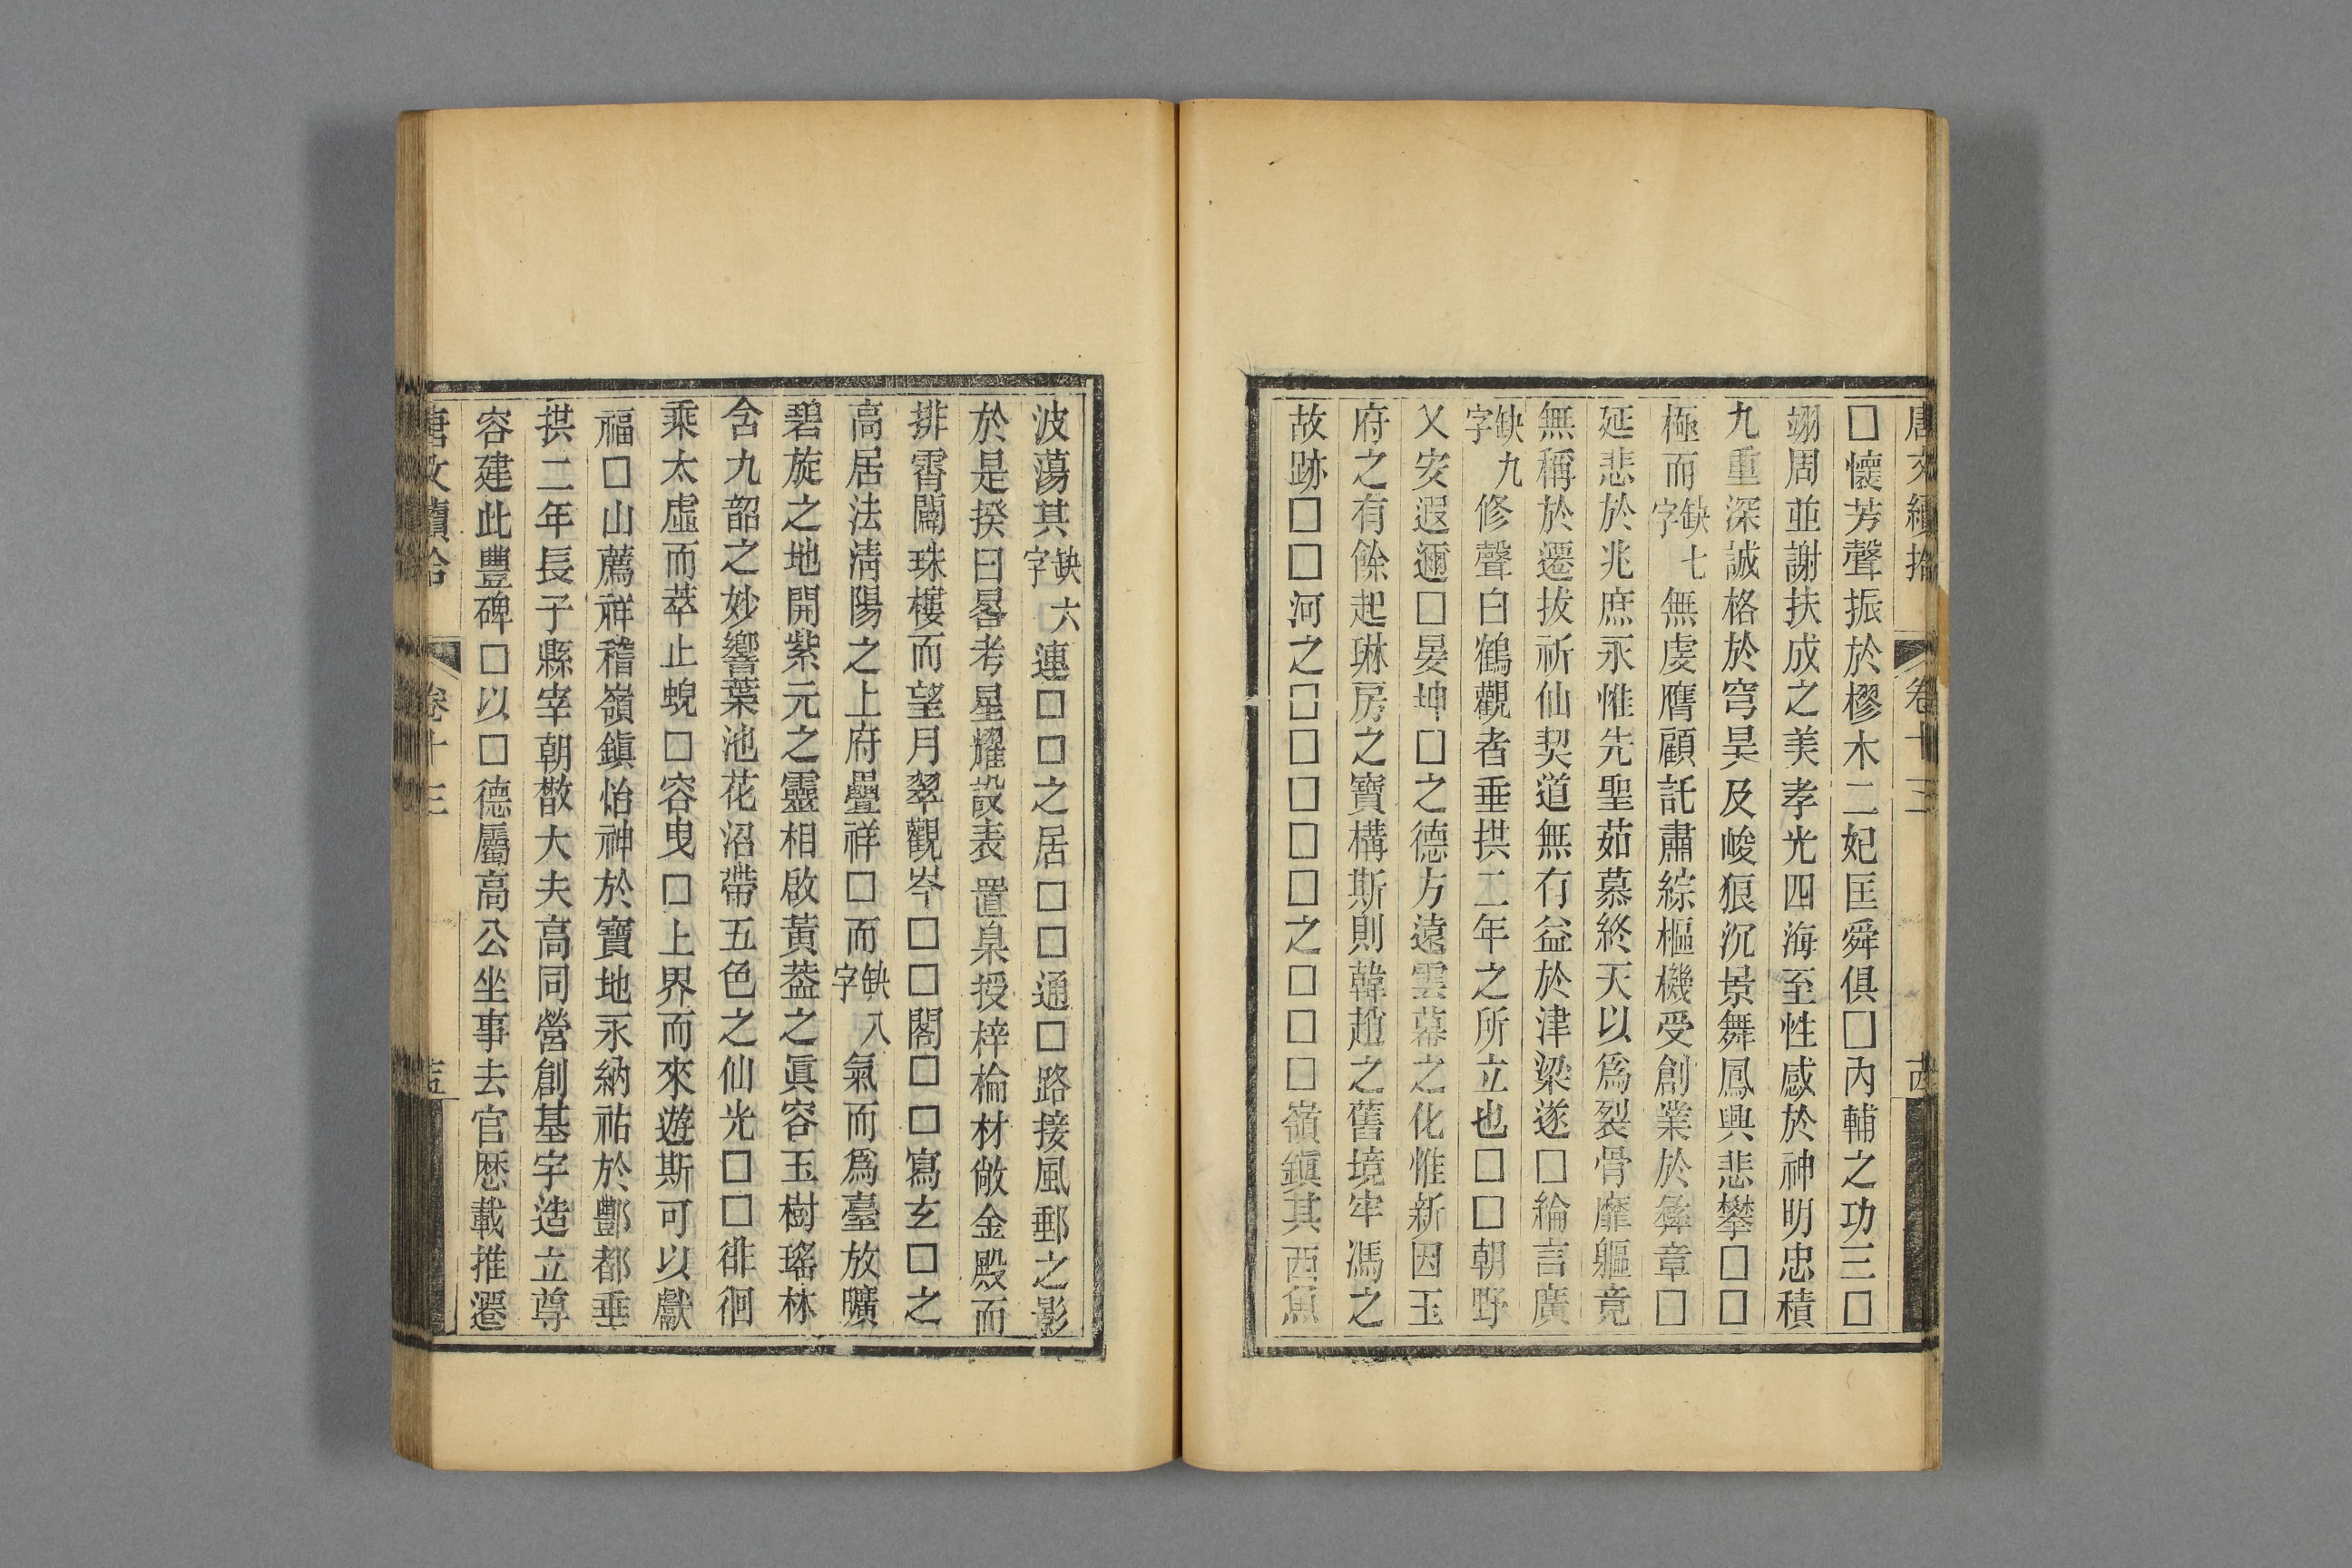 唐文續拾 卷十三 古
□懷芳聲振於樛木二妃匡舜俱□內輔之功三□
翊周並謝扶成之美孝光四海至性感於神明忠積
九重深誠格於穹昊及峻痕沉景舞鳳興悲攀□□
極而缺七字無虔膺顧託肅綜樞機受創業於彝章□
延悲於兆庶永惟先聖茹慕終天以爲裂骨靡軀竟
無稱於遷拔祈仙契道無冇益於津梁遂□綸言廣
缺九字修聲白鶴觀者垂拱二年之所立也□□朝野
乂安遐邇□晏坤□之德方遠雲幕之化惟新因玉
府之有餘起琳房之寶構斯則韓趙之舊境牢馮之
故跡□□河之□□□□□之□□□嶺鎭其西魚
波蕩其缺六字連□□之居□□通□路接風郵之影
於是揆日晷考星耀設表置臬授梓棆材敞金殿而
排霄闢珠樓而望月翠觀岑□□閣□□寫玄□之
高居法淸陽之上府疊祥□而缺八字氣而爲臺放曠
碧旋之地開紫元之靈相啟黃葢之眞容玉樹瑤林
含九韶之妙響葉池花沼帶五色之仙光□□徘徊
乘太虛而萃止蜺□容曳□上界而來遊斯可以獻
福□山薦祥稽嶺鎭怡神於寶地永納祐於酆都垂
拱二年長子縣宰朝散大夫高同營創基宇造立尊
容建此豐碑□以□德屬高公坐事去官歴載推遷
唐文續拾 卷十三